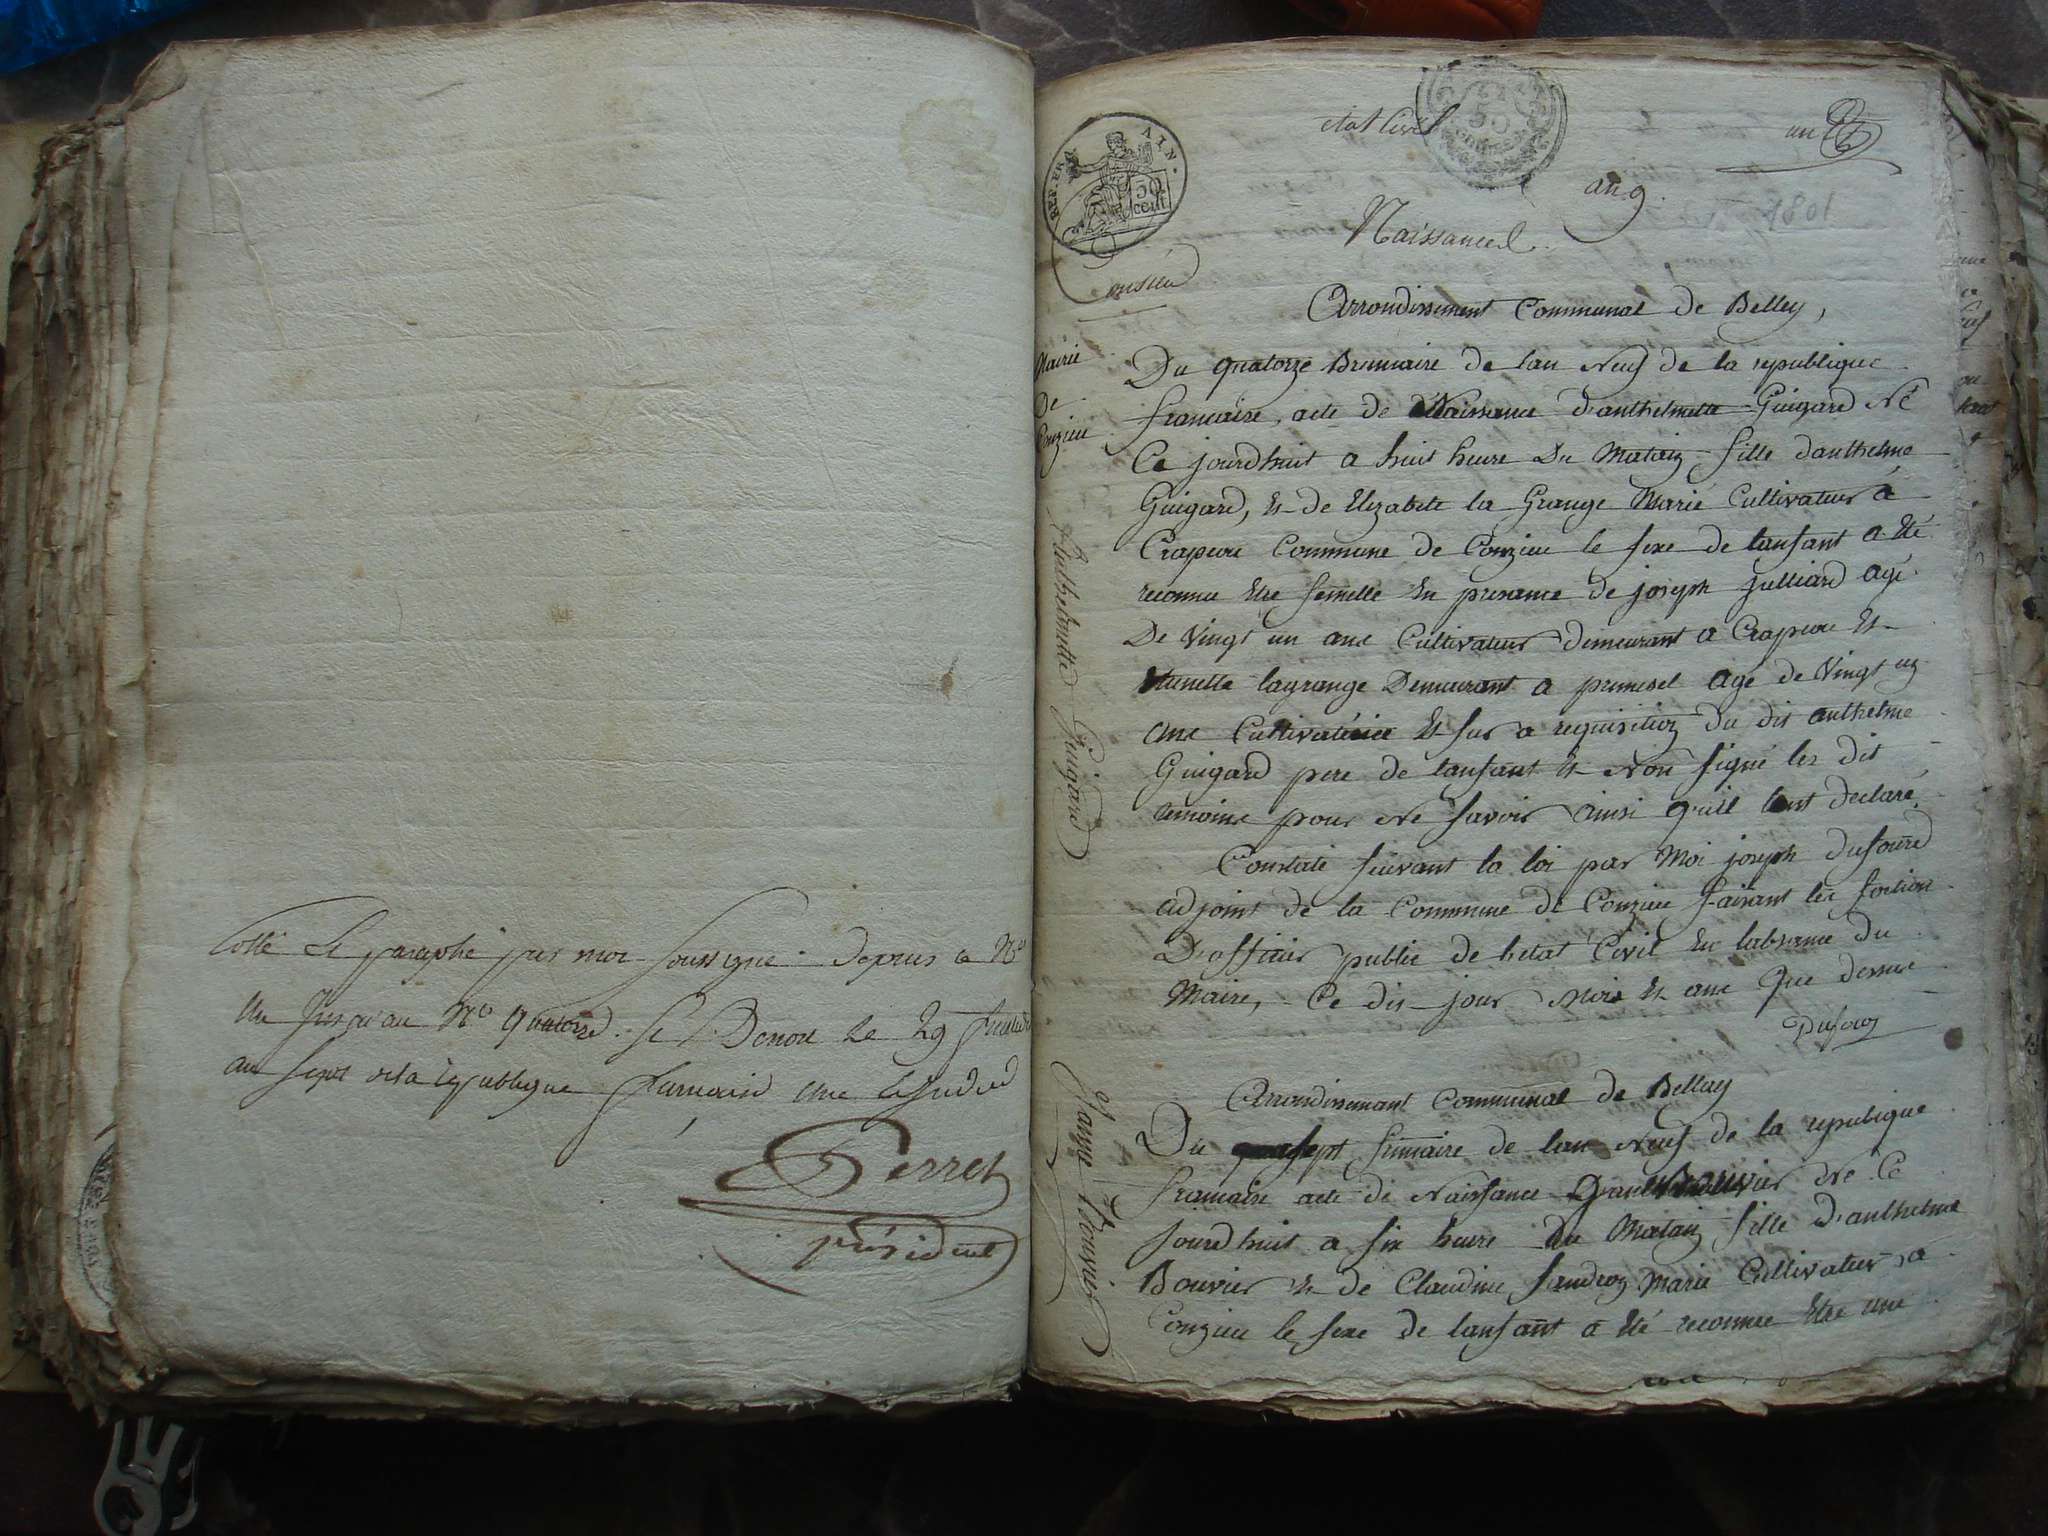 Cotté et paraphé par moi soussigné depuis le N°
un jusqu'au N° quatorze. Le 29
an sept de la republique
Perret
président
REP. FRA. AIN.
50
cent
etat Civil
un
an 9.
1801
Naissances
Consieu
Mairie
De
Conzieu
Anthelmette Guigard
Arrondissement Communal de Belley,
Du quatorze Brumaire de lan Neuf de la republique
francaise, acte de Naissance d'anthelmette Guigard Né
Ce jourdhuit a huit heure Du Matain fille d'anthelme
Guigard, et de Elizabete la Grange Marié Cultivateur à
Crapeou Commune de Conzieu le sexe de lanfant a été
reconnu Etre femelle En presence de joseph julliard agé
De Vingt un ane Cultivateur demeurant a Crapeou Et
Etunette lagrange Demeurant a premesel agé de Vingt un
ane Cultivatrice Et sur a requisition du dit anthelme
Guigard pere de lanfant Et Non signé les dit
temoins pour Ne savoir ainsi quil lont declaré,
Constaté suivant la loi par Moi joseph dufourd
adjoint de la Commune de Conzieu faisant les fontion
D'officier public de letat Civil En labsance du
Maire, Ce dit jour Mois Et ane Que dessus
Dufour
Janne Bouvier
Arrondissement Communal de Bellay
Du sept frimaire de lan Neuf de la republique
francaise acte de Naissance Bouvier Né Ce
jourdhuit a six heure du Matain fille d'anthelme
Bouvier Et de Claudine Marié Cultivateur a
Conzieu le sexe de lanfant a été reconnu Etre une